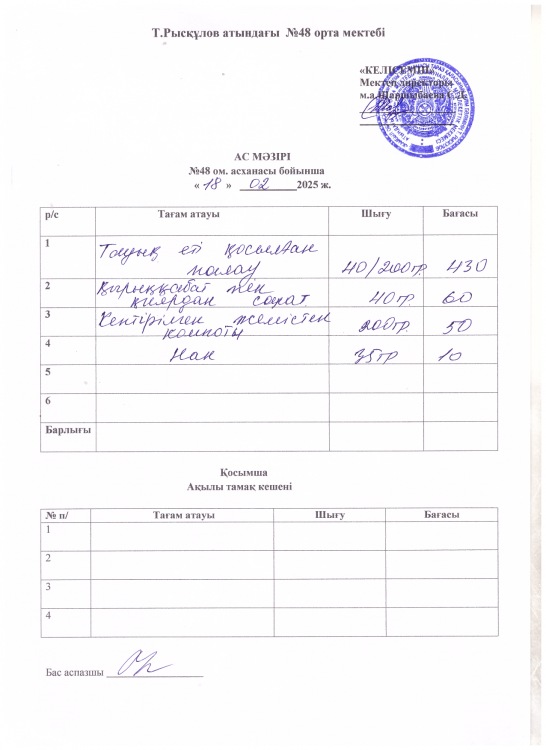 Т.Рысқұлов атындағы №48 орта мектебі
«КЕЛІСЕМІН»
Мектеп директоры
м.а.
АС МӘЗІРІ
№48 ом. асханасы бойынша
« 18 » 02 2025 ж.
р/с Тағам атауы Шығу Бағасы
1 Тауық еті қосылған
палау 40/200гр 430
2 Қырыққабат пен
қиярдан салат 40гр. 60
3 Кептірілген жемістен 200гр. 50
компоты
4 Нан 35гр 10
5
6
Барлығы
Қосымша
Ақылы тамақ кешені
№ п/ Тағам атауы Шығу Бағасы
1
2
3
4
Бас аспазшы